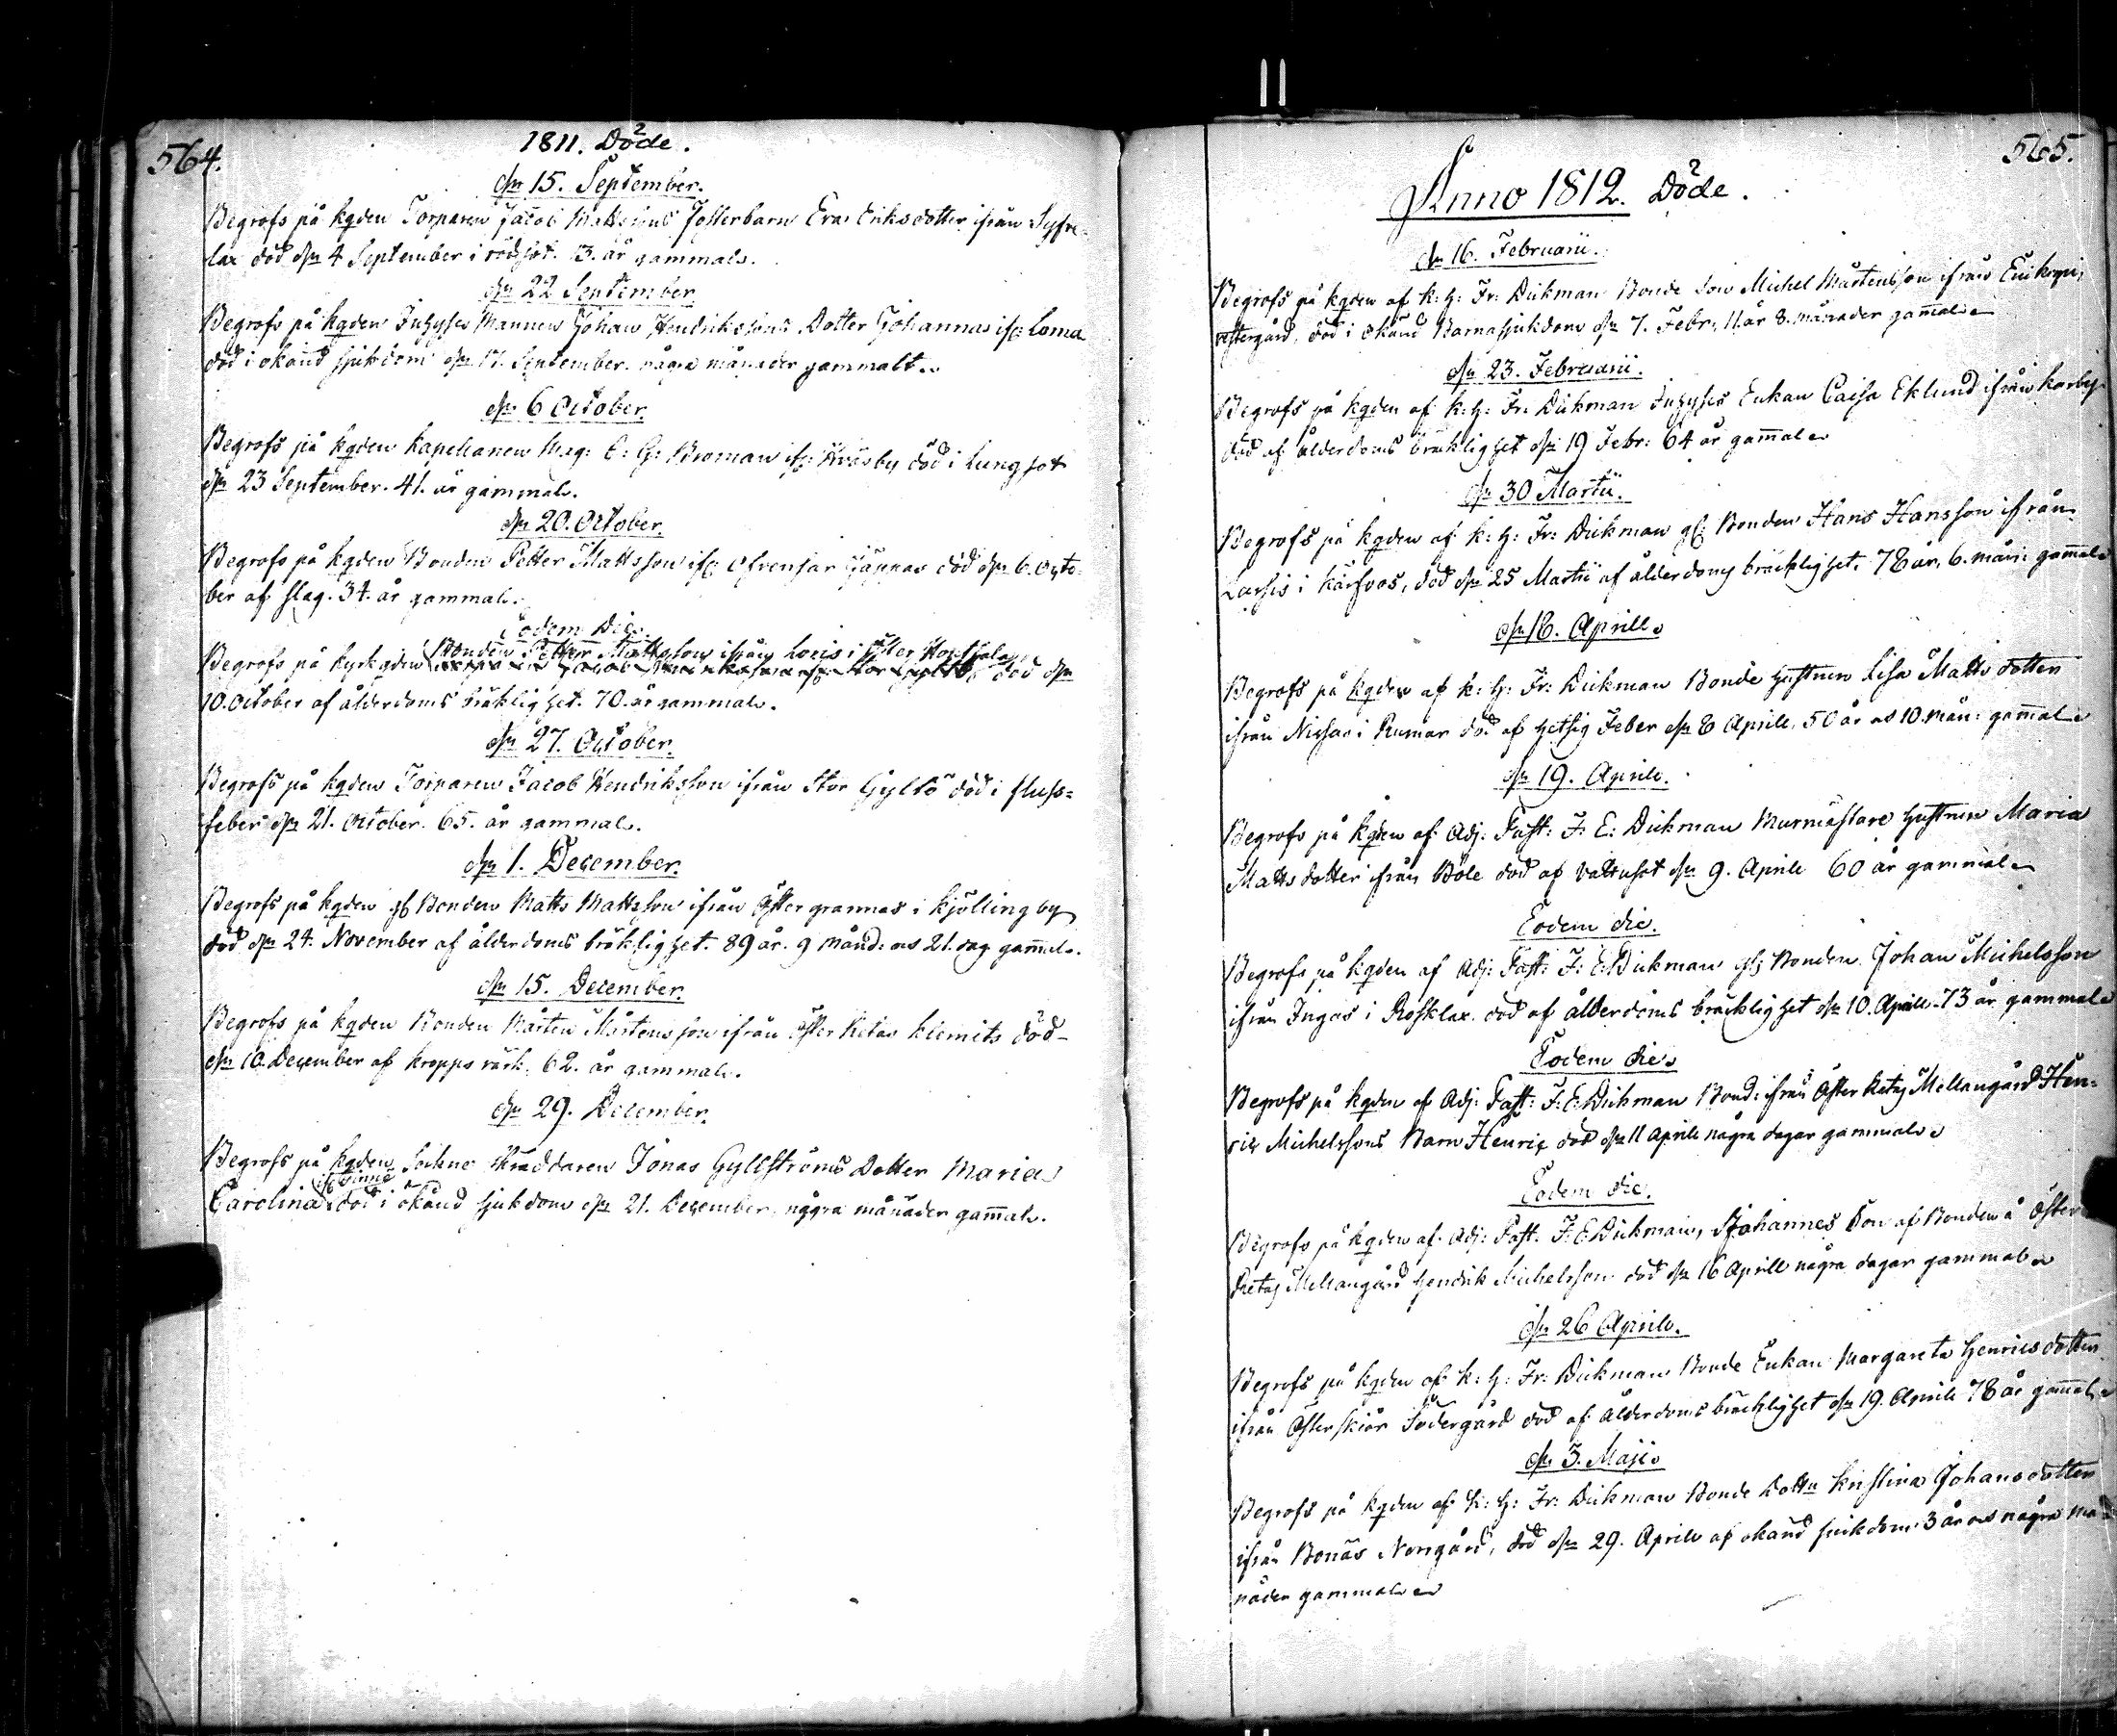 564.
1811. Döde.
d. 15. September.
Begrofs på kgden Torparen Jacob Mattssons Fosterbarn Eva Eriksdotter ifrån Syfve-
lax död d. 4 September i rödsot. 13. år gammal.
d. 22 September
Begrofs på kgden Inhyses Mannen Johan Hendrikssons Dotter Johanna if: Loma
död i okänd sjukdom d. 17. September. några månader gammalt.
d. 6 October.
Begrofs på kgden Kapellanen Mag: C: G: Broman if: Träsby död i Lungsot
d. 23 September. 41. år gammal.
d. 20. October.
Begrofs på kgden Bonden Petter Mattsson if: Ofvensjär död d. 6. Octo-
ber af slag. 34. år gammal.
Eodem Die.
Bonden Petter Mattsson ifrån i
Begrofs på kyrkgden Jacob Hendriksson if: Stor Gyltö död d.
10. October af ålderdoms bräklighet. 70. år gammal.
d. 27. October.
Begrofs på kgden Torparen Jacob Hendriksson ifrån Stor Gyltö död i fluss-
feber d. 21. October. 65. år gammal.
d. 1. December.
Begrofs på kgden gl Bonden Matts Mattsson ifrån Öster grannas i Kjölling by
död d. 24. November af ålderdoms bräklighet. 89 år. 9 månd: o 21. dag gammal.
d. 15. December.
Begrofs på kgden Bonden Mårten Mårtensson ifrån Öster Retais Klemets död
d. 10. December af kropps värk. 62. år gammal.
d. 29. December.
Begrofs på kgden Sockne Skräddaren Jonas Gyllströms Dotter Maria
Carolina död i okänd sjukdom d. 21. December, några månader gammal.
565.
Anno 1812. Döde.
d. 16. Februarii.
Begrofs på kgden af K: H: Fr: Dickman Bonde Son Michel Mårtensson ifrån
ostergård, död i okänd Barnasjukdom d. 7. Febr: 11. år 8. månader gammal
d. 23. Februarii.
Begrofs på kgden af K: H: Fr: Dickman Inhyses Enkan Caisa Eklund ifrån Korby
död af ålderdoms bräklighet d. 19 Febr: 64 år gammal
d. 30 Martii.
Begrofs på kgden af K: H: Fr: Dickman gl: Bonden Hans Hansson ifrån
Larsis i Kärfvos, död d. 25 Martii af ålderdoms bräcklighet. 78 år, 6. mån: gammal
d. 18. Aprill
Begrofs på kgden af K: H: Fr: Dickman Bonde Hustrun Lisa Mattsdotter
ifrån Nissas i Rumar död af hetsig Feber d. 8 Aprill, 50 år o 10. mån: gammal
d. 19. Aprill.
Begrofs på kgden af Adj: Past: F: E: Dickman Murmästare Hustrun Maria
Mattsdotter ifrån Böle död af vattusot d. 9. Aprill 60 år gammal
Eodem die.
Begrofs på kgden af Adj: Past: F: E: Dickman gl: Bonden Johan Michelsson
ifrån Ingas i Rosklax död af ålderdoms bräcklighet d. 10. Aprill. 73 år gammal
Eodem die.
Begrofs på kgden af Adj: Past: F: E: Dickman Bond: ifrån Öster Retais Mellangård Hen-
ric Michelssons Barn Henric död d. 11 Aprill några dagar gammal
Eodem die.
Begrofs på kgden af Adj: Past. F: E: Dickman, Johannes Son af Bonden å Öster
Retais Mellangård Hendrik Michelsson död d. 16 Aprill några dagar gammal
d. 26 Aprill.
Begrofs på kgden af K: H: Fr: Dickman Bonde Enkan Margareta Henricsdotter
ifrån Österskiär Södergård död af ålderdoms bräcklighet d. 19. Aprill 78 år gammal
d. 3. Maji
Begrofs på kgden af K: H: Fr: Dickman Bonde Dotter Kristina Johansdotter
ifrån Bonäs Norrgård, död d. 29. Aprill af okänd sjukdom 3 år o några må-
nader gammal